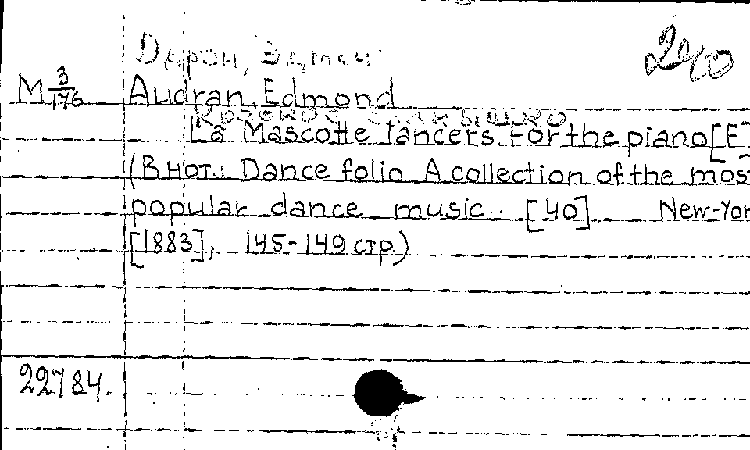 240
М 3/176
Audran, Edmond
La Mascotte lancers for the piano [F]
(В нот.: Dance folio A collection of the mos
popular dance music. [40] New-Yor
[1883], 145-149 стр.)
22784.